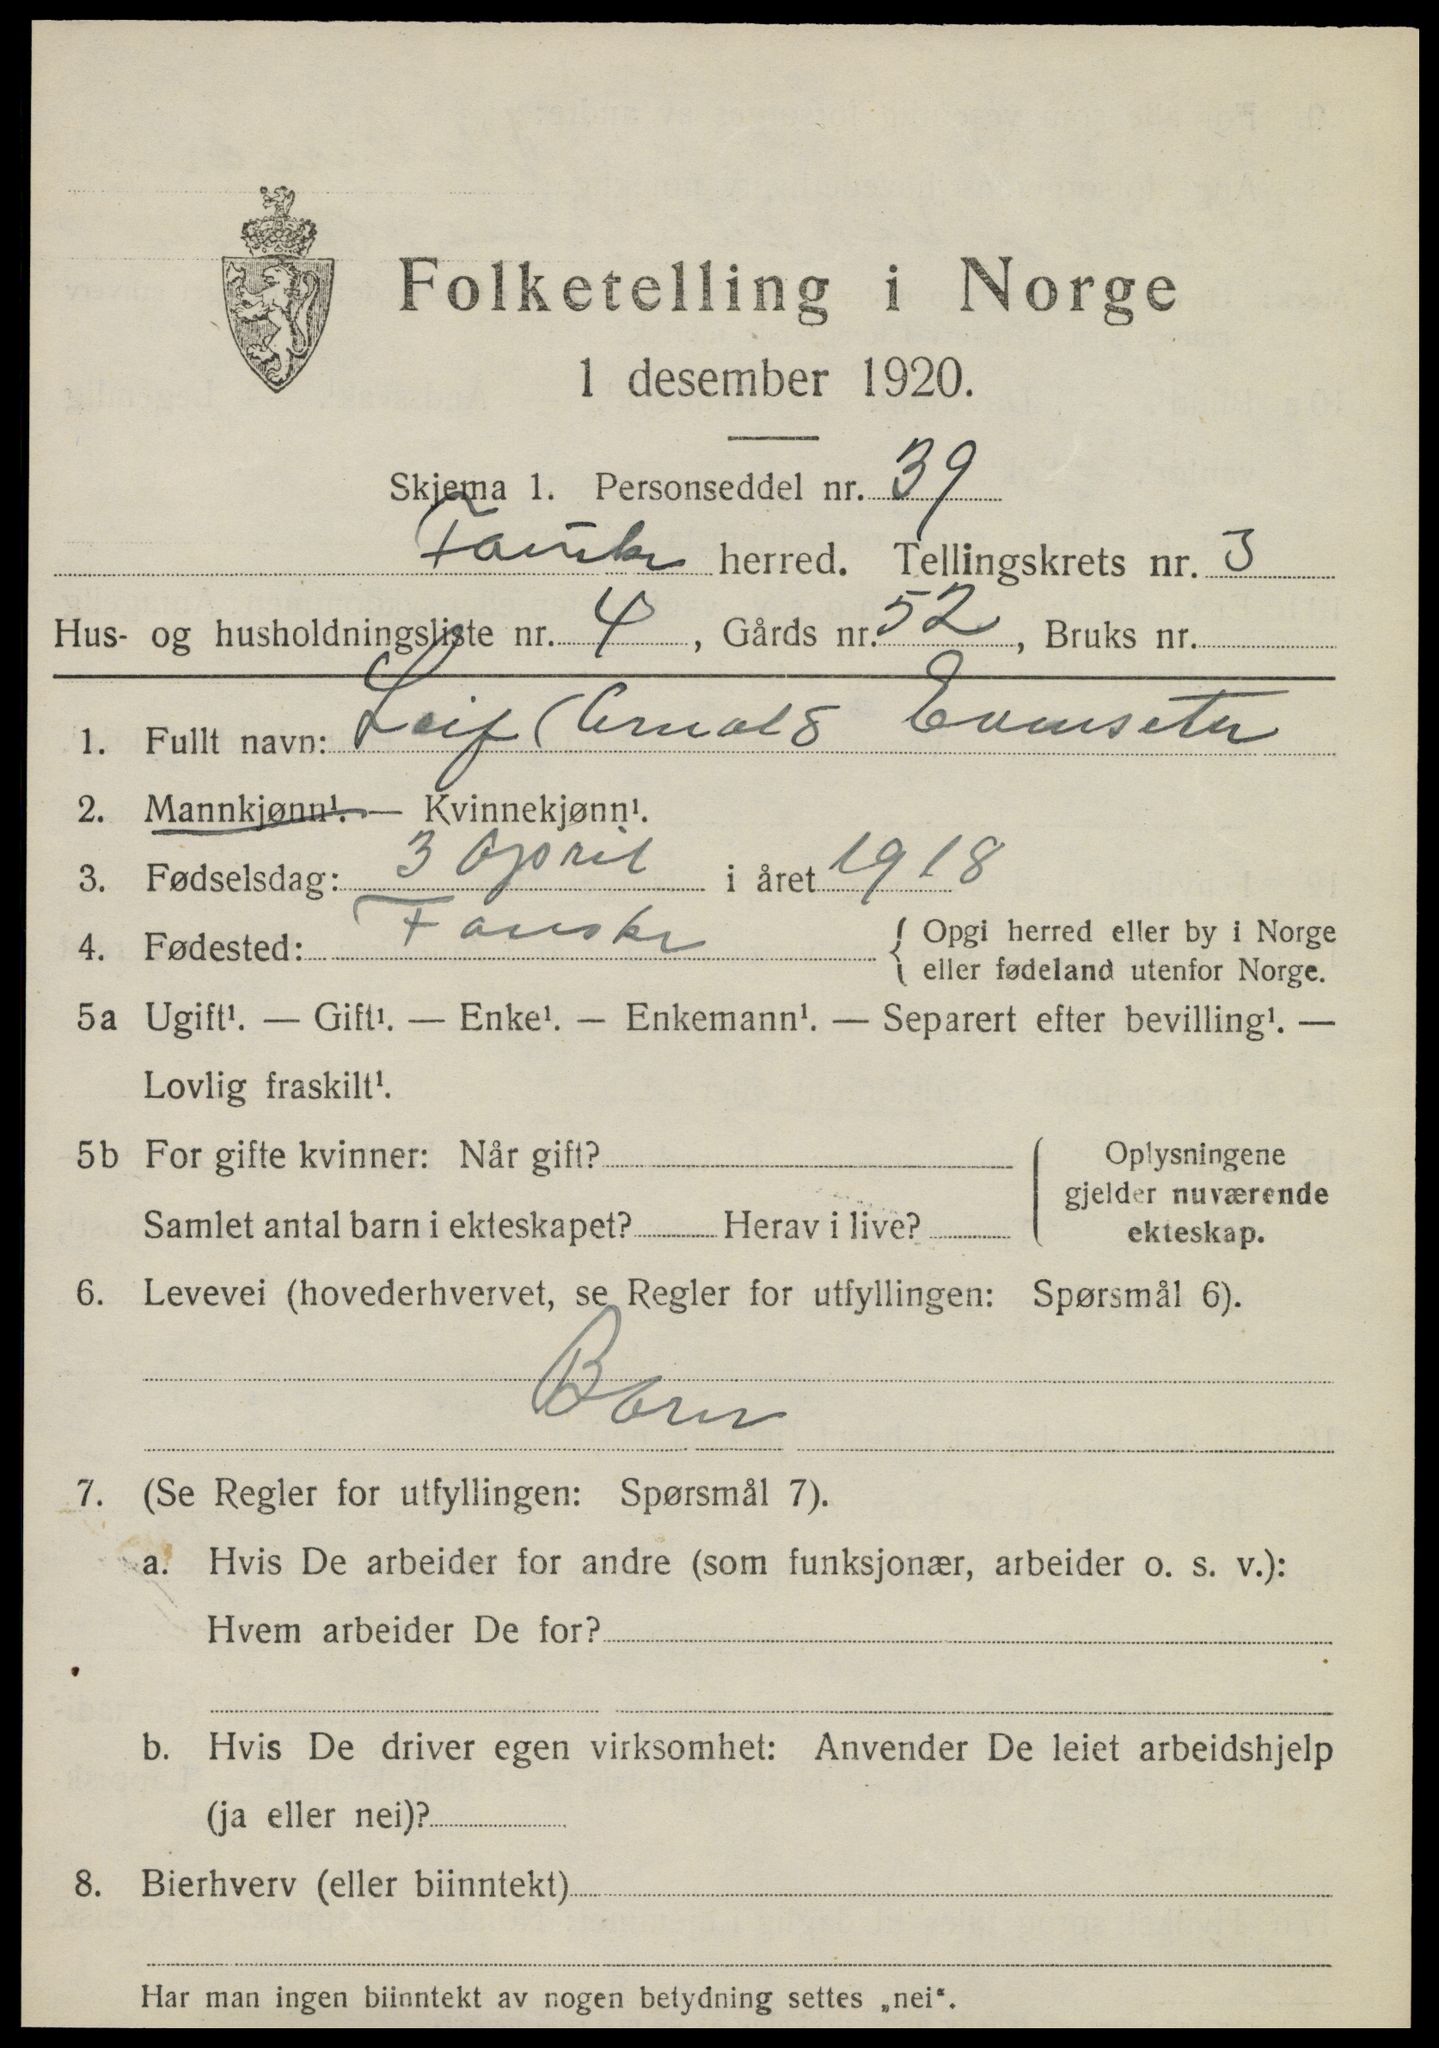 Folketelling i Norge
1 desember 1920.
Skjema 1. Personseddel nr. 39
Fauske herred. Tellingskrets nr. 3
Hus- og husholdningsliste nr. 4, Gårds nr. 52, Bruks nr.
1. Fullt navn: Leif Arnold Evenseter
2. Mannkjønn¹. — Kvinnekjønn¹.
3. Fødselsdag: 3 April i året 1918
4. Fødested: Fauske { Opgi herred eller by i Norge
eller fødeland utenfor Norge.
5a Ugift¹. — Gift¹. — Enke¹. — Enkemann¹. — Separert efter bevilling¹. —
Lovlig fraskilt¹.
5b For gifte kvinner: Når gift?
Samlet antal barn i ekteskapet? Herav i live?
Oplysningene
gjelder nuværende
ekteskap.
6. Levevei (hovederhvervet, se Regler for utfyllingen: Spørsmål 6).
Barn
7. (Se Regler for utfyllingen: Spørsmål 7).
a. Hvis De arbeider for andre (som funksjonær, arbeider o. s. v.):
Hvem arbeider De for?
b. Hvis De driver egen virksomhet: Anvender De leiet arbeidshjelp
(ja eller nei)?
8. Bierhverv (eller biinntekt)
Har man ingen biinntekt av nogen betydning settes „nei“.